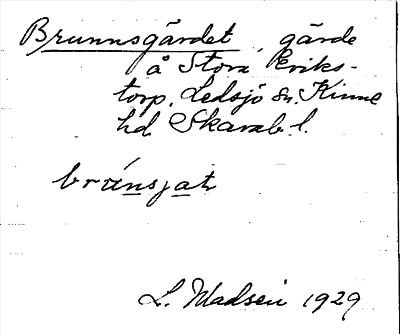 Brunnsgärdet, gärde
å Stora Eriks-
torp, Ledsjö sn, Kinne
hd. Skarab. l.
brúnsjat
L. Madsen 1929